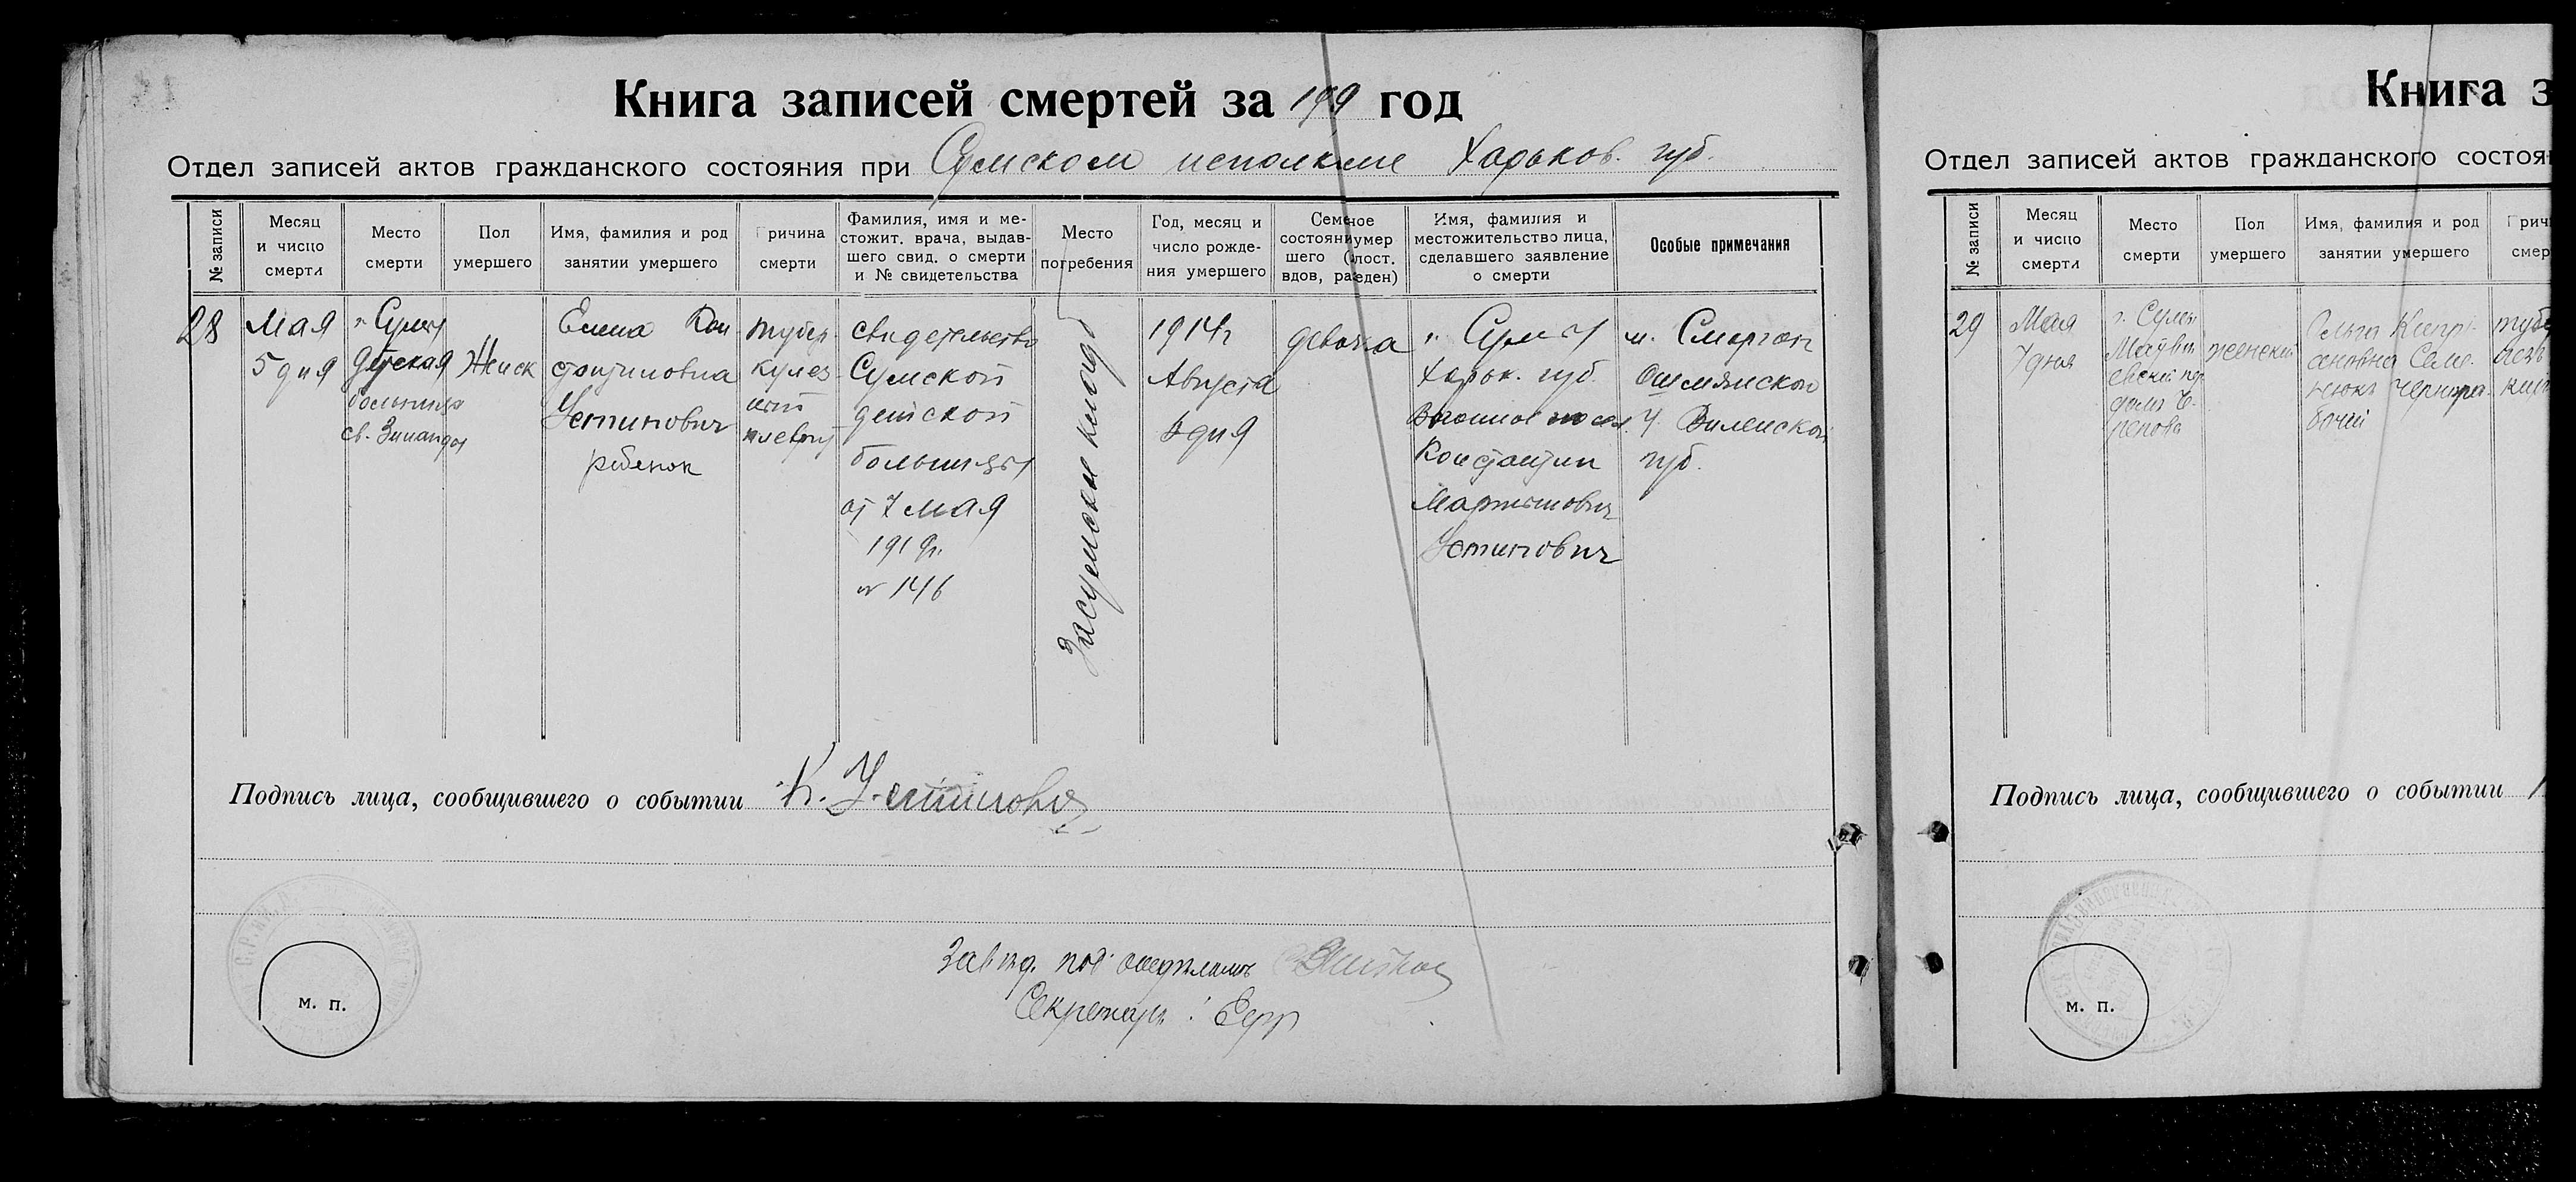 Книга записей смертей за 1919 год
Отдел записей актов гражданского состояния при Сумском исполкоме Харьков. губ.
№ записи
Месяц
и число
смерти
Место
смерти
Пол
умершего
Имя, фамилия и род
занятии умершего
Причина
смерти
Фамилия, имя и ме-
стожит. врача, выдав-
шего свид. о смерти
и № свидетельства
Место
погребения
Год, месяц и
число рожде-
ния умершего
Семейное
состояние умер
шего (холост.
вдов, разведен)
Имя, фамилия и
местожительство лица,
сделавшего заявление
о смерти
Особые примечания
28
Мая
5 дня
г. Сумы
детская
больница
св. Зинаиды
Женск
Елена Кон
стантиновна
Устинович
ребенок
тубер-
кулез
ный
плеврит
свидетельство
Сумской
детской
больницы
от 7 мая
1919 г.
№ 146
Засумское кладб
1914 г
Августа
дня
девочка
г. Сумы
Харьк. губ.
Константин
Мартинович
Устинович
м. Сморгон
Ошмянской
у. Виленской
губ.
Подпись лица, сообщившего о событии К. Устинович
м. п.
Завед. под отделом
Секретарь:
Книга з
Отдел записей актов гражданского состоя
№ записи
Месяц
и число
смерти
Место
смерти
Пол
умершего
Имя, фамилия и род
занятии умершего
Прич
смер
29
Мая
7 дня
г. Сумы
женский
Ольга Кипри-
ановна
черкора-
бочий
тубе
Подпись лица, сообщившего о событии
м. п.